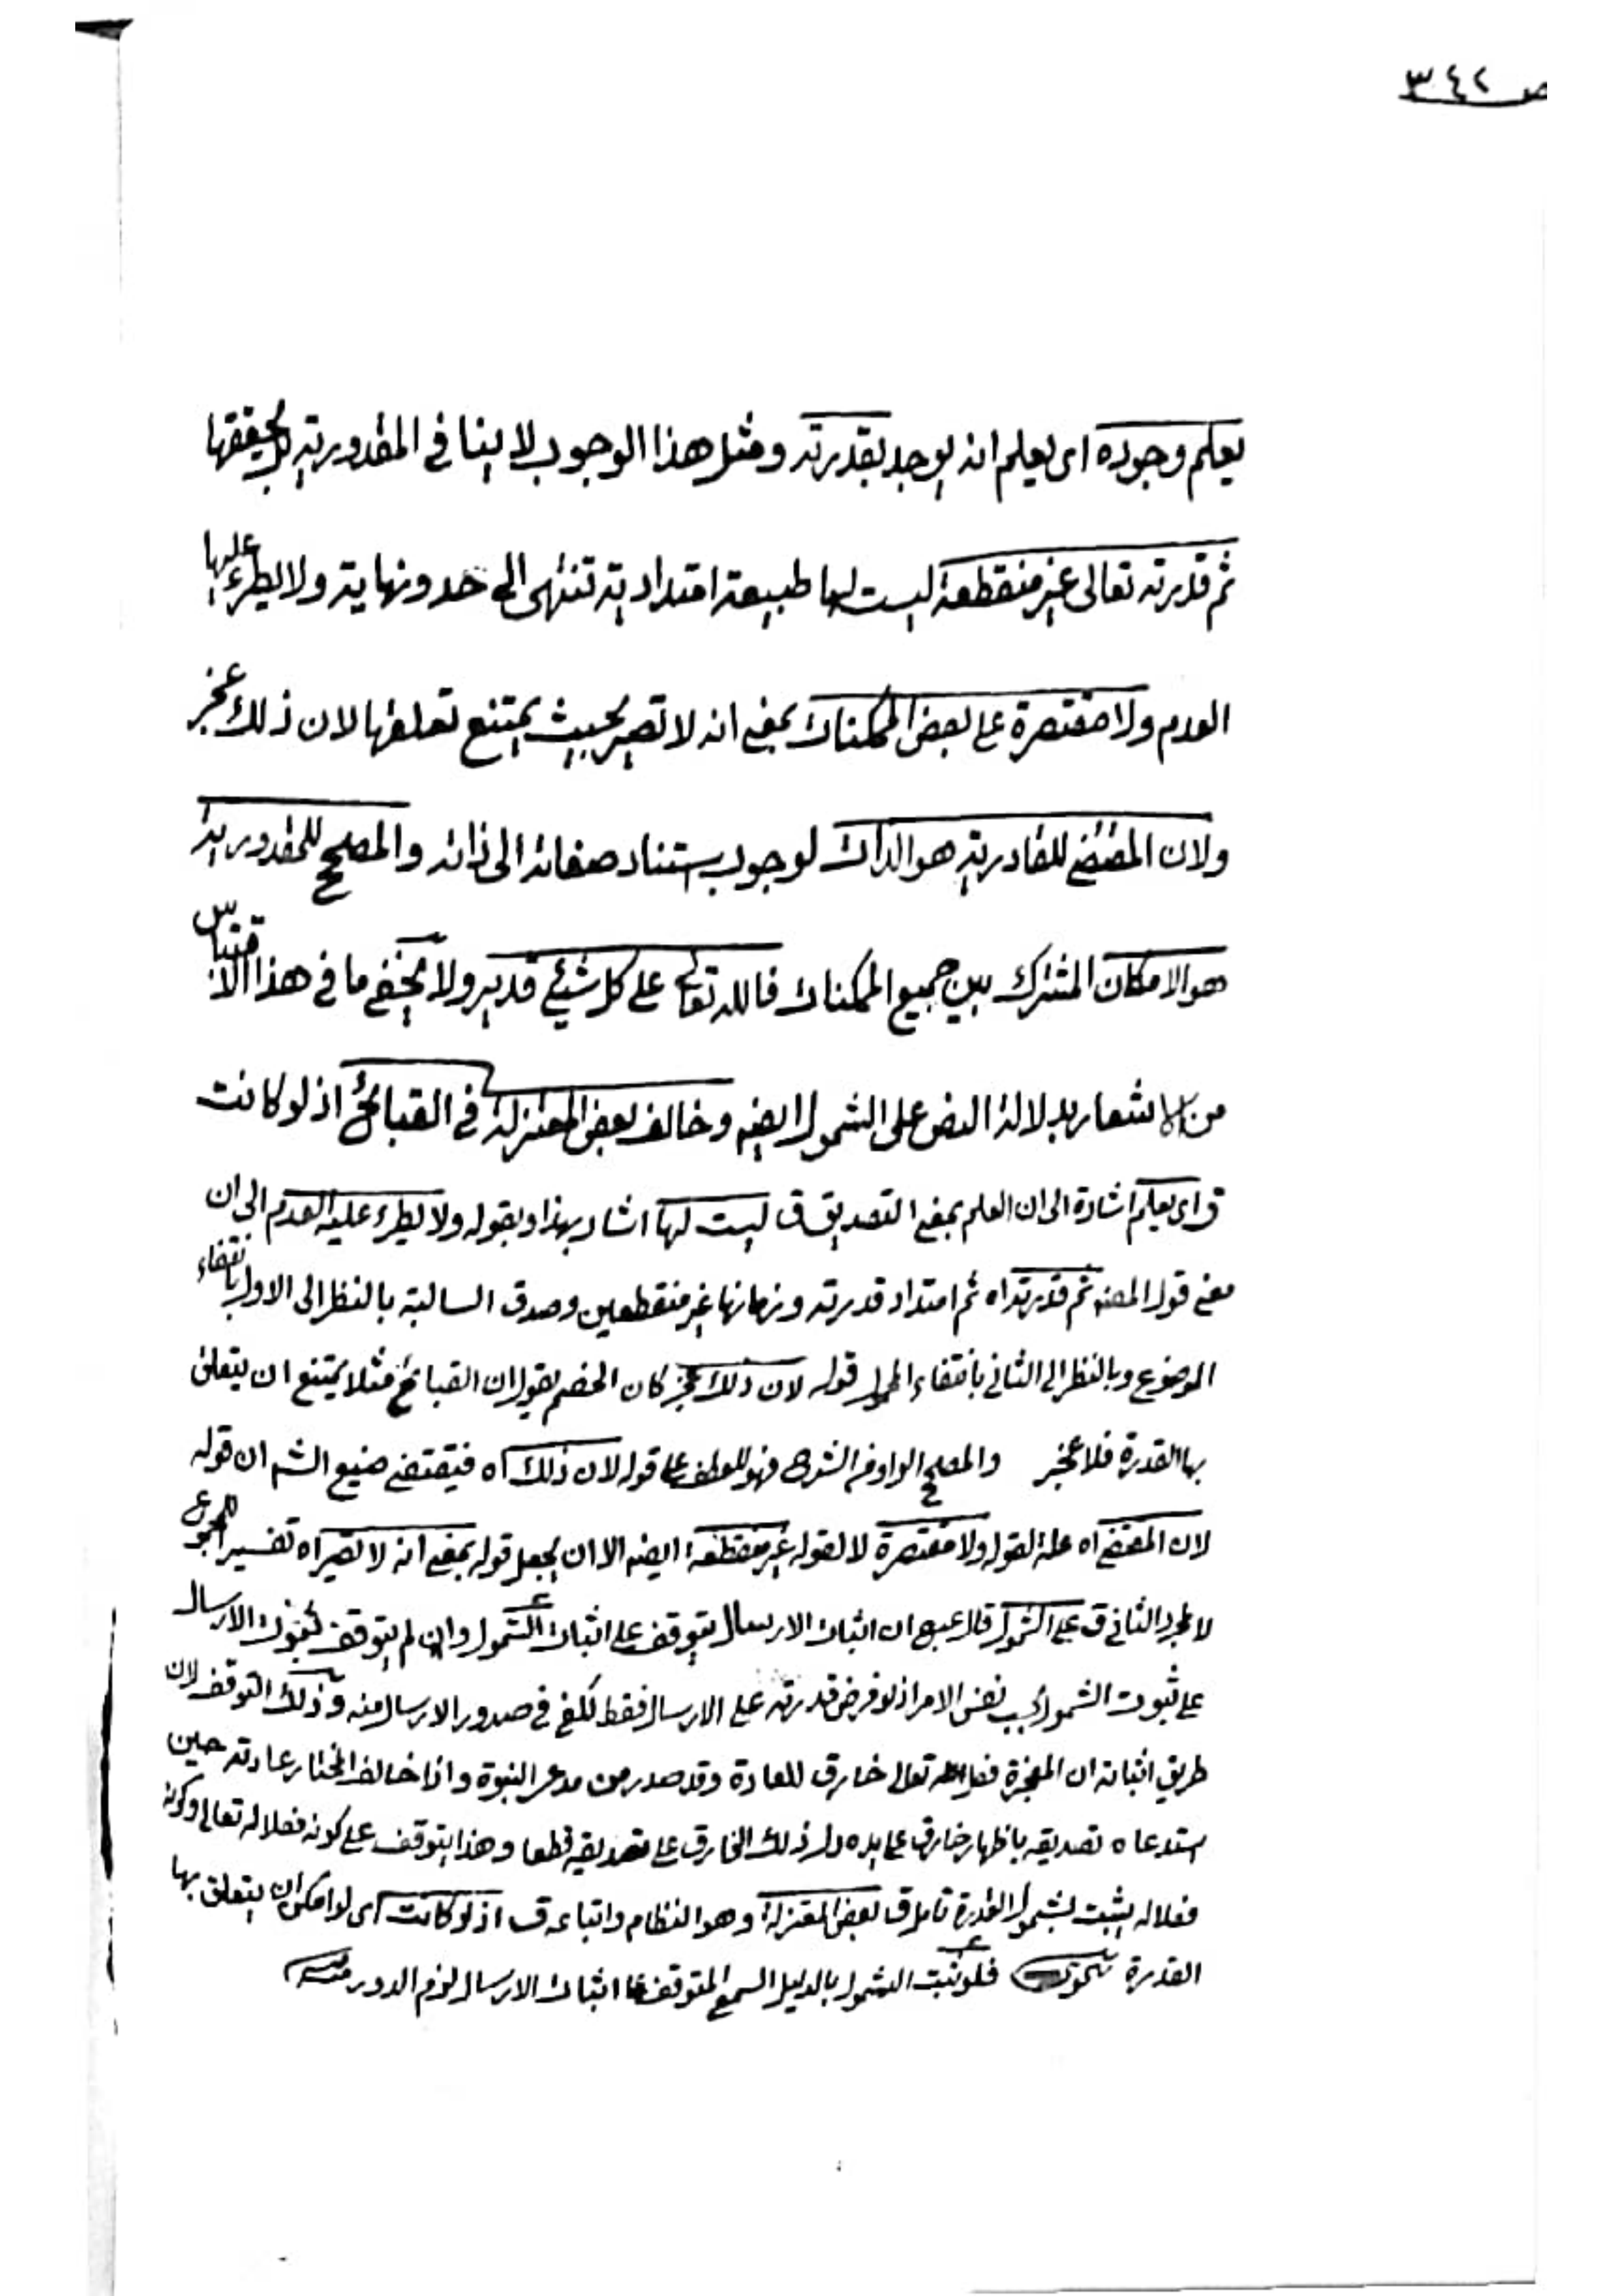 ص ٣٤٢
يعلم وجوده اى يعلم انه يوجد بقدرته ومثل هذا الوجوب لا ينافى المقدورية بل يحققها
ثم قدرته تعالى غير منقطعة ليست لها طبيعة امتدادية تنتهى الى حد ونهاية ولا يطرء عليها
العدم ولا مقتصرة على بعض الممكنات بمعنى انه لا تصير بحيث يمتنع تعلقها لان ذلك عجز
ولان المقتضى للقادرية هو الذات لوجوب استناد صفاته الى ذاته والمصلح للمقدورية
هو الامكان المشترك بين جميع الممكنات فالله تعالى على كل شيئ قدير ولا يخفى ما فى هذا الاقتباس
من الاشعار بدلالة النص على الشمول ايضه وخالف بعض المعتزلة فى القبائح اذ لو كانت
ق اى يعلم اشارة الى ان العلم بمعنى التصديق ق ليست لها اشار بهذا وبقوله ولا يطرء عليه العدم الى ان
معنى قول المصنه ثم قدرته اه ثم امتداد قدرته وزمانها غير منقطعين وصدق السالبة بالنظر الى الاول بانتفاء
الموضوع وبالنظر الى الثانى بانتفاء المحمول قوله لان ذلك عجز كان الخصم يقول ان القبائح مثلا يمتنع ان يتعلق
بها القدرة فلا عجز والمصلح الواو من الشرح فهو للعطف على قوله لان ذلك اه فيقتضى صنيع الشه ان قوله
لان المقتضى اه علة لقوله ولا مقتصرة لا لقوله غير منقطعة ايضه الا ان يجعل قوله بمعنى انه لا تصير اه تفسير المجموع
لا لمجرد الثانى ق على الشمول قال عبح ان اثبات الارسال يتوقف على اثبات الشمول وان لم يتوقف ثبوت الارسال
على ثبوت الشمول بحسب نفس الامر اذ لو فرض قدرته على الارسال فقط لكفى فى صدور الارسال منه وذلك التوقف لان
طريق اثباته ان المعجزة فعل الله تعالى خارق للعادة وقد صدر من مدعى النبوة واذا خالف المختار عادته حين
استدعاه تصديقه باظهار خارق على يده دل ذلك الخارق على تصديقه قطعا وهذا يتوقف على كونه فعلا له تعالى وكونه
فعلا له يثبت بشمول القدرة تامل ق بعض المعتزلة وهو النظام واتباعه ق اذ لو كانت اى لو امكن ان يتعلق بها
القدرة فلو ثبت الشمول بالدليل السمعى المتوقف على اثبات الارسال لزم الدور منه